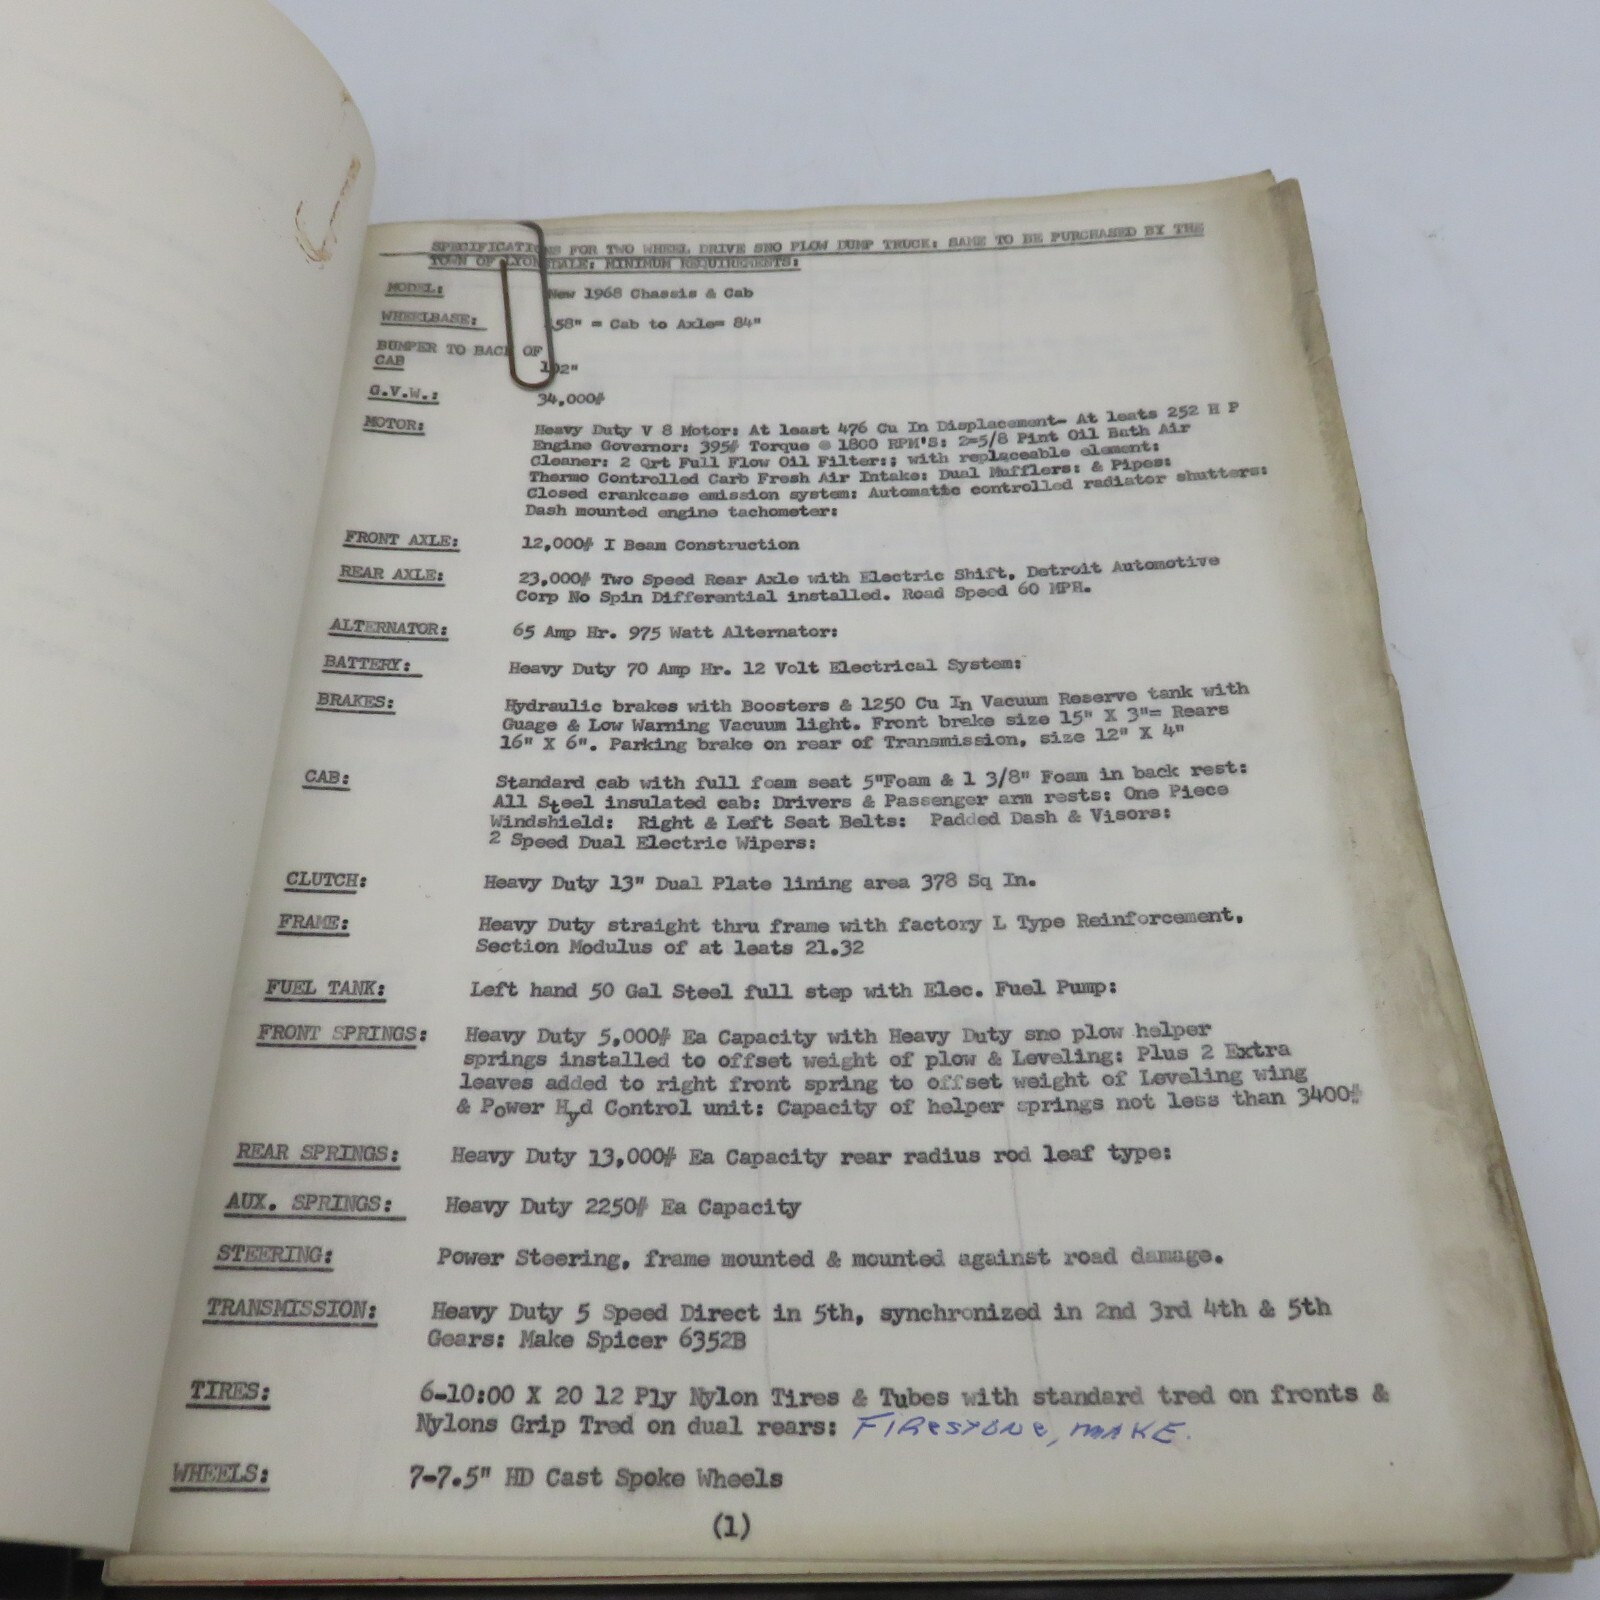 SPECIFICATIONS FOR TWO WHEEL DRIVE SNO PLOW DUMP TRUCK: SAME TO BE PURCHASED BY THE
TOWN OF LYONSDALE: MINIMUM REQUIREMENTS:
MODEL: New 1968 Chassis & Cab
WHEELBASE: 158" = Cab to Axle= 84"
BUMPER TO BACK OF
CAB 102"
G.V.W.: 34,000#
MOTOR: Heavy Duty V 8 Motor: At least 476 Cu In Displacement- At leats 252 H P
Engine Governor: 395# Torque @ 1800 RPM'S: 2=5/8 Pint Oil Bath Air
Cleaner: 2 Qrt Full Flow Oil Filter:; with replaceable element:
Thermo Controlled Carb Fresh Air Intake: Dual Mufflers: & Pipes:
Closed crankcase emission system: Automatic controlled radiator shutters:
Dash mounted engine tachometer:
FRONT AXLE: 12,000# I Beam Construction
REAR AXLE: 23,000# Two Speed Rear Axle with Electric Shift, Detroit Automotive
Corp No Spin Differential installed. Road Speed 60 MPH.
ALTERNATOR: 65 Amp Hr. 975 Watt Alternator:
BATTERY: Heavy Duty 70 Amp Hr. 12 Volt Electrical System:
BRAKES: Hydraulic brakes with Boosters & 1250 Cu In Vacuum Reserve tank with
Guage & Low Warning Vacuum light. Front brake size 15" X 3"= Rears
16" X 6". Parking brake on rear of Transmission, size 12" X 4"
CAB: Standard cab with full foam seat 5"Foam & 1 3/8" Foam in back rest:
All Steel insulated cab: Drivers & Passenger arm rests: One Piece
Windshield: Right & Left Seat Belts: Padded Dash & Visors:
2 Speed Dual Electric Wipers:
CLUTCH: Heavy Duty 13" Dual Plate lining area 378 Sq In.
FRAME: Heavy Duty straight thru frame with factory L Type Reinforcement,
Section Modulus of at leats 21.32
FUEL TANK: Left hand 50 Gal Steel full step with Elec. Fuel Pump:
FRONT SPRINGS: Heavy Duty 5,000# Ea Capacity with Heavy Duty sno plow helper
springs installed to offset weight of plow & Leveling: Plus 2 Extra
leaves added to right front spring to offset weight of Leveling wing
& Power Hyd Control unit: Capacity of helper springs not less than 3400#
REAR SPRINGS: Heavy Duty 13,000# Ea Capacity rear radius rod leaf type:
AUX. SPRINGS: Heavy Duty 2250# Ea Capacity
STEERING: Power Steering, frame mounted & mounted against road damage.
TRANSMISSION: Heavy Duty 5 Speed Direct in 5th, synchronized in 2nd 3rd 4th & 5th
Gears: Make Spicer 6352B
TIRES: 6-10:00 X 20 12 Ply Nylon Tires & Tubes with standard tred on fronts &
Nylons Grip Tred on dual rears: FIRESTONE, MAKE.
WHEELS: 7-7.5" HD Cast Spoke Wheels
(1)